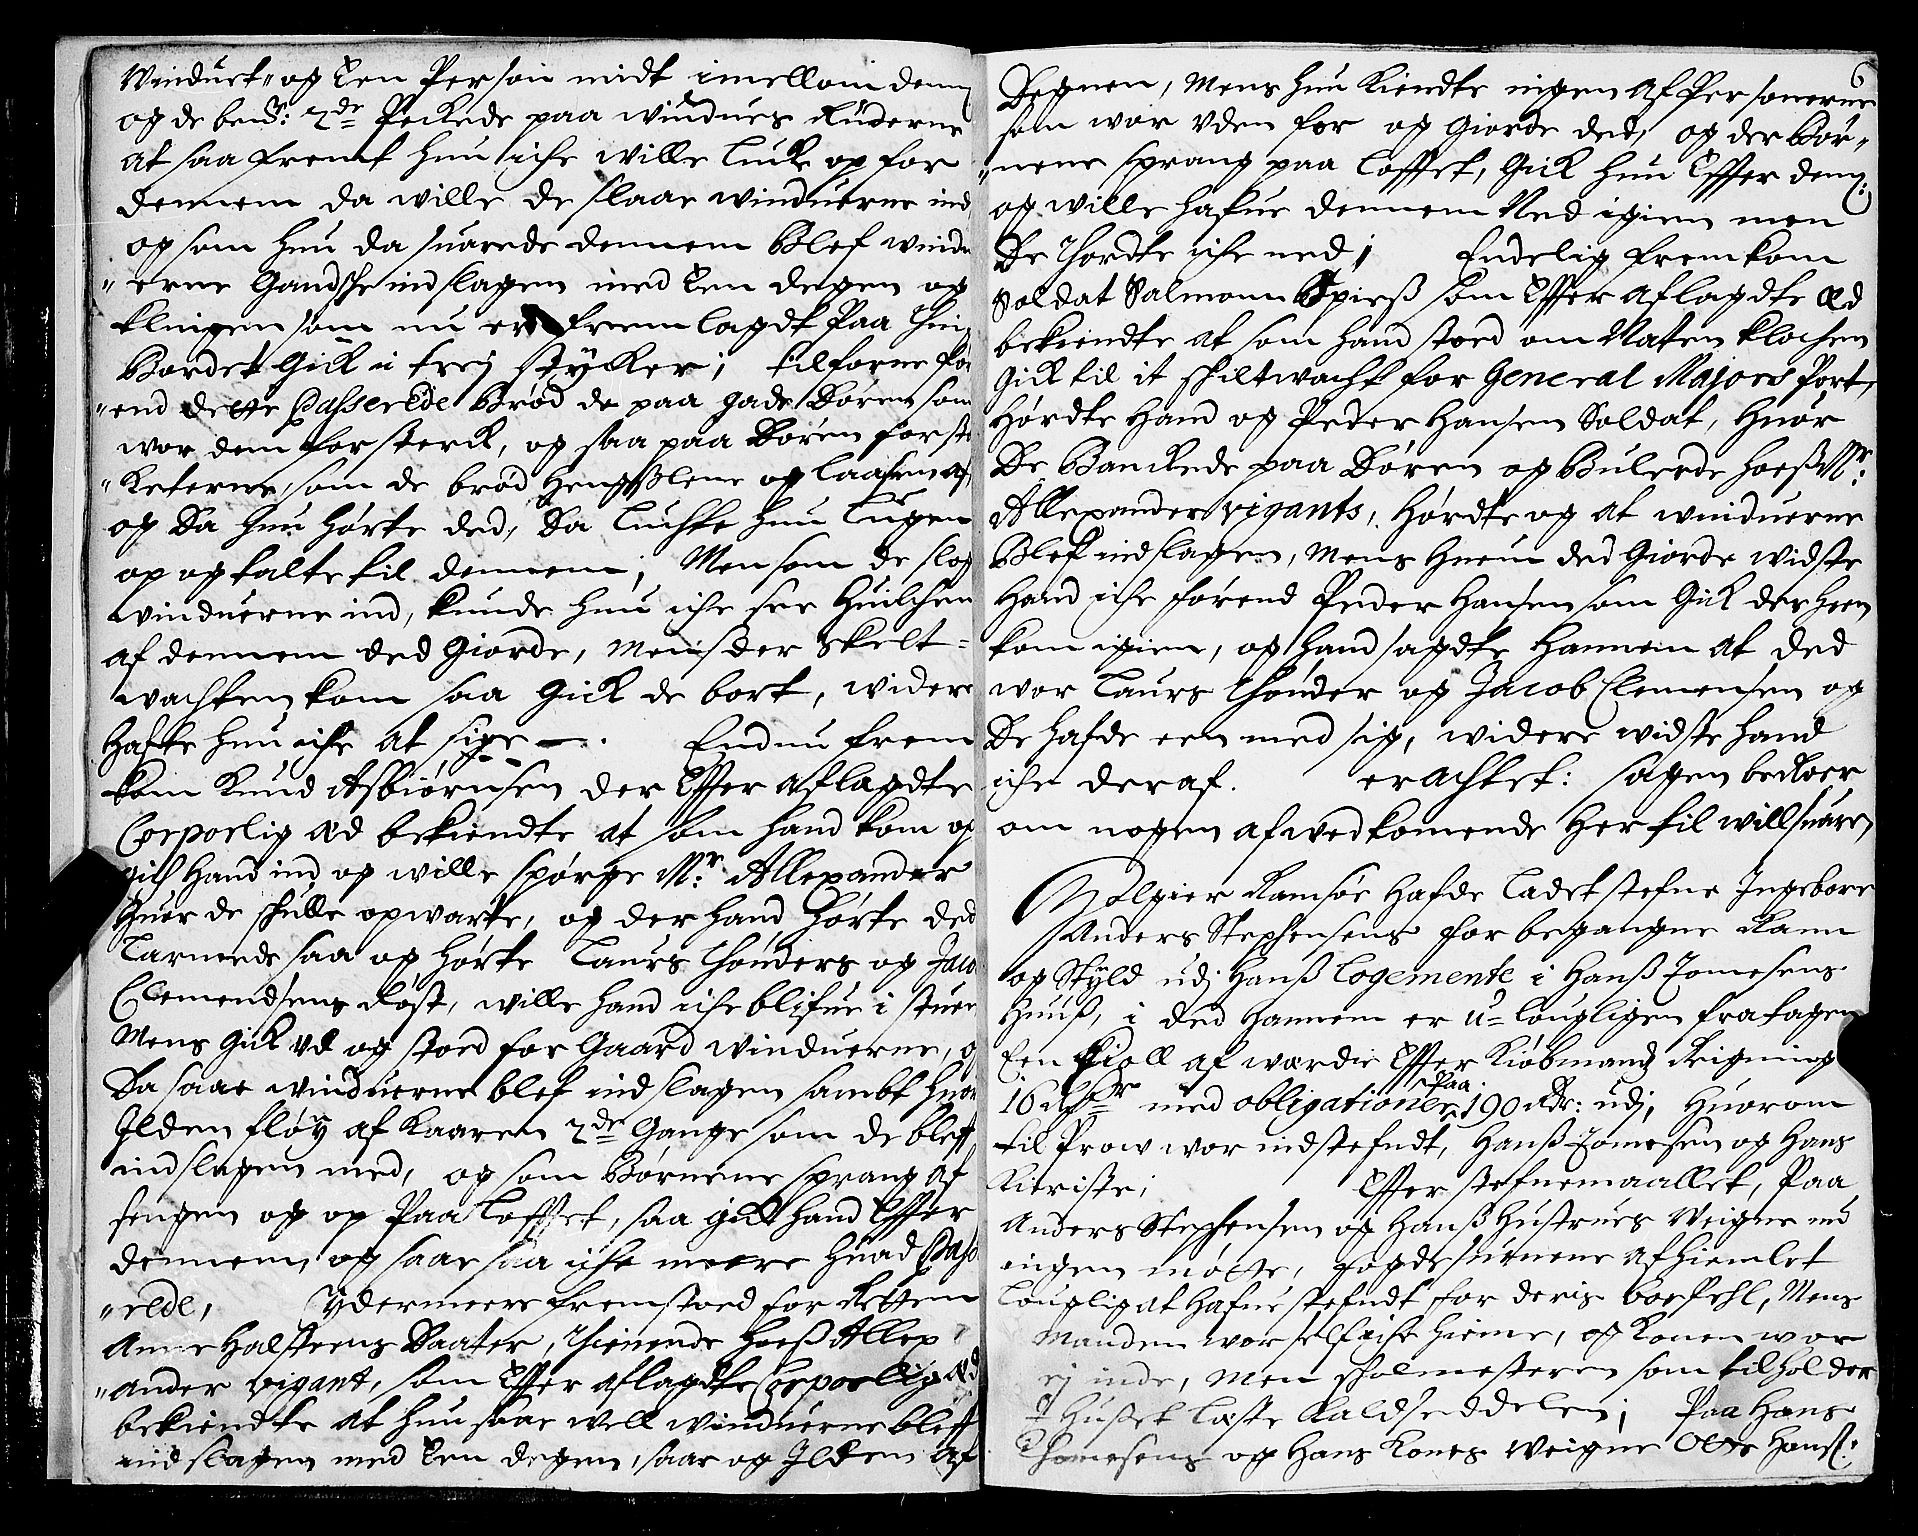 Winduet, og Een Person midt imellom dennem
og de bemte: 2de Peckede paa windues Ruderne
at saa fremt hun iche wille lucke op for
dennem da wille de slaae winduerne ind,
og som hun da suarede dennem Blef windu
"erne Gandsche indslagen med Een degen og
klingen som nu er fremlagdt Paa Ting
Bordet Gick i trej stycker; tilforne for
"end dette Passerede Brød de paa gade Døren som
wor dem for sterck, og saa paa Døren forste
"keterne, som de brød Hengslene og laasen af,
og da hun hørte ded, da luchte hun lugen
op og talte til dennem; Men som de slog
winduerne ind, kunde hun iche see Huilchen
af dennem ded Giorde, Mens der Skelt=
wachten kom saa Gick de bort, widere
hafte hun iche at sige. Endnu frem
kom Knud Asbiørnsen der Effter aflagdte
Corporlig Æd bekiendte at som hand kom op
gich hand ind og wille spørge Mr: Allexander
Huor de schulle opwarte, og der hand hørte ded
larmede saa og hørte Laurs Thonders og Jacob
Clemendsens Røst, wille hand iche blifue i stuen
Mens Gick ud og stoed for Gaard winduerne, og
da saae winduerne blef indslagen sambt huor
Ilden fløy af Kaaren 2de Gange som de bleff
indslagen med, og som Børnene sprang af
sengen og op Paa Lofftet, saa gick hand Effter
dennem, og saae saa iche meere huad Passe
"rede, Ydermeere fremstoed for Retten
Anne Halsteens Daater, Thienende hoeß Allex
"ander vigant, som Effter aflagdte Corporlig Æd
bekiendte at hun saae well winduerne bleff
indslagen med Een degen, saae og Ilden af
6
Degnen, Mens hun kiendte ingen af Personerne
som wor uden for og Giorde ded, og der Bør"
"nene sprang paa Lofftet, Gick hun Effter dem:
og wille hafue dennem Ned igien men
de Thordte iche ned; Endelig fremkom
Soldat Salmonn Spieß som Effter aflagdte Æd
bekiendte at som hand stoed om Naten klochen
Gick til it schiltwacht for General Majors Port,
Hørdte Hand og Peder Hansen Soldat, Huor
De Banckede paa Døren og Bulrede hoeß Mr:
Allexander vigants, Hørdte og at winduerne
Blef indslagen, Mens Huem ded Giorde widste
Hand iche førend Peder Hansen som Gick der heen
kom igien, og hand sagdte Hannem at ded
wor Laurs Thonder og Jacob Clemensen og
De hafde een med sig, widere widste hand
iche deraf. erachtet: sagen beRoer
om nogen afvedkomende Her til will suare,
Melgier Ramsøe Hafde ladet stefne Ingebore
Anders Stephensens for begangne Ram
og Skyld udj Hanß Logemente i Hanß Tomesens
Huuß, i ded Hannem er u=lougligen fratagen
Een Kioll af wærdie Effter Kiøbmands Reigning
16 Rdr med obligationer Paa 190 Rdr: udj, Huorom
til Prow wor indstefndt, Hanß Tomesen og Hans
Kieriste; Effter stefnemaallet, Paa
Anders Stephensen og Hanß Hustrues Weigne ud
ingen møtte, fogdesuenene afhiemlet
Louglig at Hafue stefndt for deris boepehl, Mens
Manden wor self iche hieme, og konen wor
ej inde, men scholmesteren som tilholder
i Husset læste Kaldseddelen; Paa Hans
Thomesens og Hans Kones Weigne Otte Hanß: